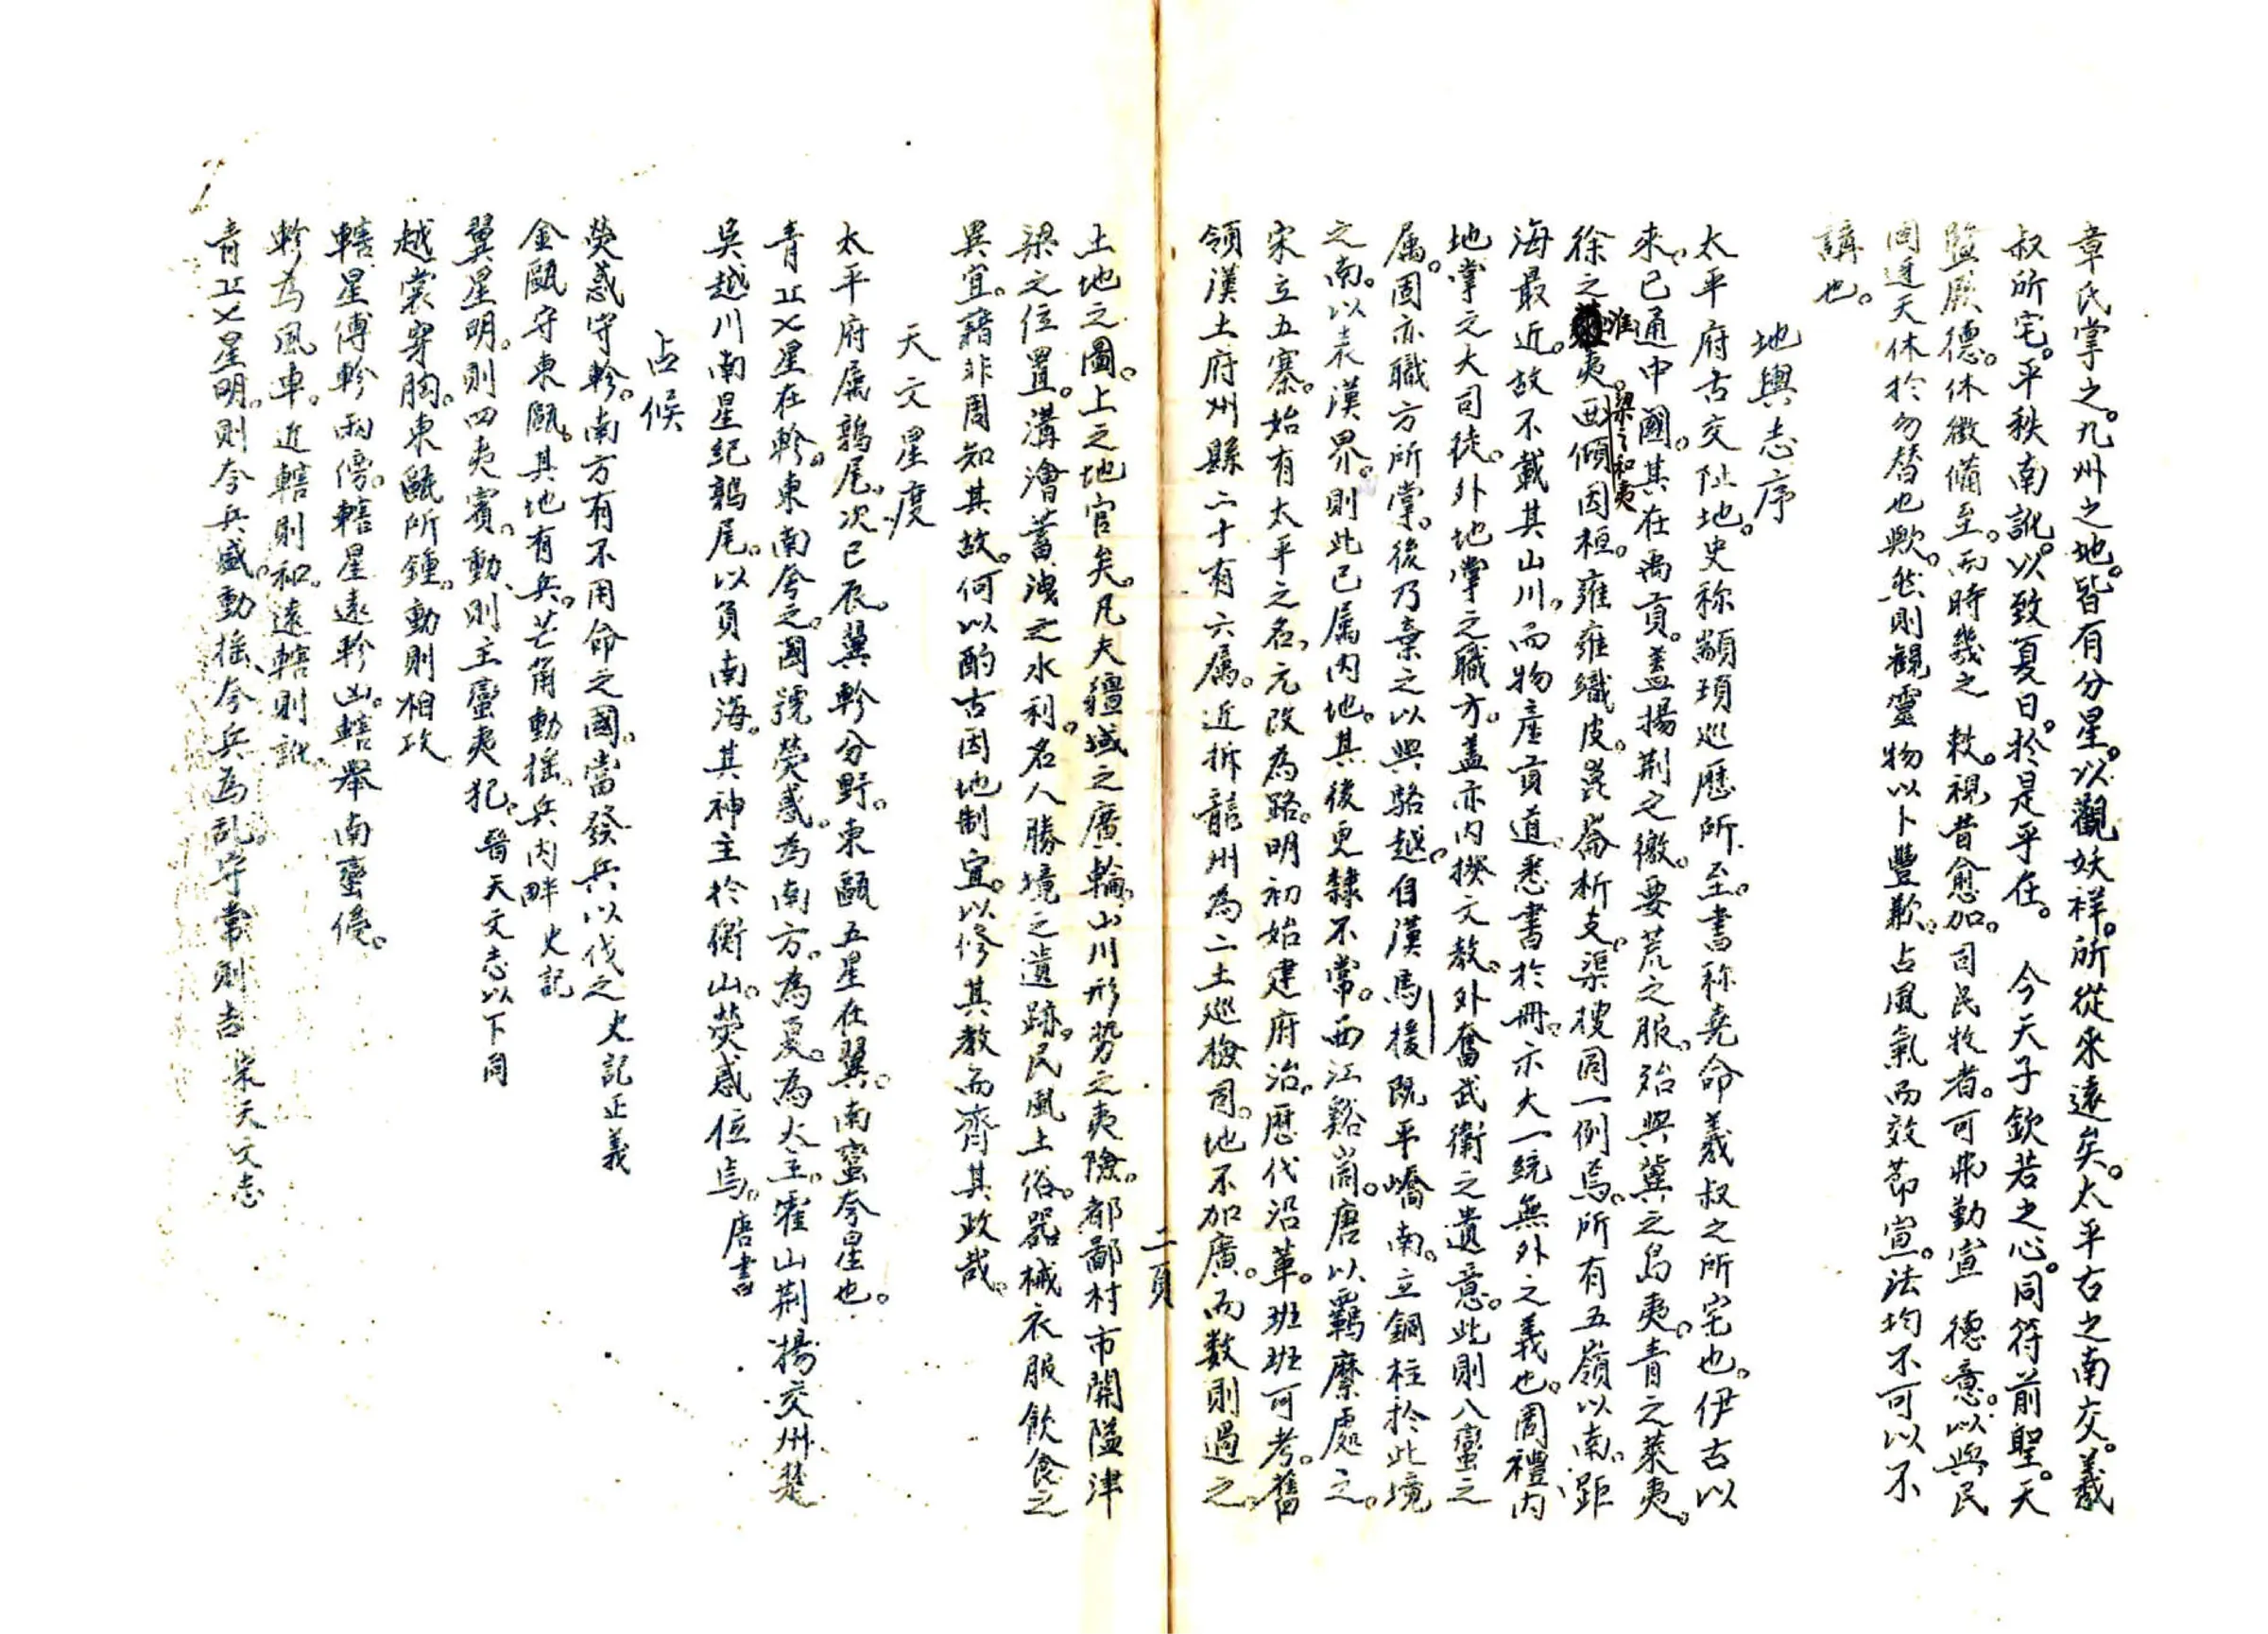 章氏掌之。九州之地。皆有分星。以觀妖祥。所從來遠矣。太平古之南交。羲
叔所宅。平秩南訛。以致夏日。於是乎在。 今天子欽若之心。同符前聖。天
監厥德。休徵備至。而時幾之 敕。視昔愈加。司民牧者。可弗勤宣 德意。以與民
同迓天休於勿替也歟。然則觀靈物以卜豐歉。占風氣而效節宣。法均不可以不
講也。
地輿志序
太平府古交阯地。史称顓頊巡歷所至。書称堯命羲叔之所宅也。伊古以
來。已通中國。其在禹貢。蓋揚荆之徼。要荒之服。殆與冀之島夷。青之萊夷。
徐之淮夷。梁之和夷西傾因桓。雍雍織皮。崑崙析支。渠搜同一例焉。所有五嶺以南。距
海最近。故不載其山川。而物產貢道。悉書於冊。示大一統無外之義也。周禮內
地掌之大司徒。外地掌之職方。蓋亦內揆文教。外奮武衛之遺意。此則八蠻之
属。固亦職方所掌。後乃棄之以與駱越。自漢馬援既平嶠南。立銅柱於此境
之南。以表漢界。則此已属內地。其後更隸不常。西江谿峝。唐以羈縻處之。
宋立五寨。始有太平之名。元改為路。明初始建府治。歷代沿革。班班可考。舊
領漢土府州縣二十有六属。近拆龍州為二土巡檢司。地不加廣。而数則過之。
二頁
土地之圖。上之地官矣。凡夫疆域之廣輪。山川形势之夷險。都鄙村市關隘津
梁之位置。溝澮蓄洩之水利。名人勝境之遺跡。民風土俗。器械衣服飲食之
異宜。藉非周知其故。何以酌古因地制宜。以修其教而齊其政哉。
天文星度
太平府属鶉尾。次巳辰。翼軫分野。東甌五星在翼。南蛮夸星也。
青丘七星在軫。東南夸之。國號熒惑。為南方。為夏。為火。主霍山荆揚交州楚
吳越川南星紀鶉尾。以負南海。其神主於衡山。熒惑位焉。唐書
占候
熒惑守軫。南方有不用命之國。當發兵以伐之 史記正義
金甌守東甌。其地有兵。芒角動摇。兵內畔 史記
翼星明。則四夷賓。動、則主蛮夷犯。晉天文志以下同
越裳穿胸。東甌所鍾。動則相攻
轄星傅軫兩傍。轄星遠軫凶。轄舉南蛮侵。
軫為風車。近轄則和。遠轄則訛。
青丘七星明。則夸兵盛。動摇、夸兵為乱。守常則吉 宋天文志